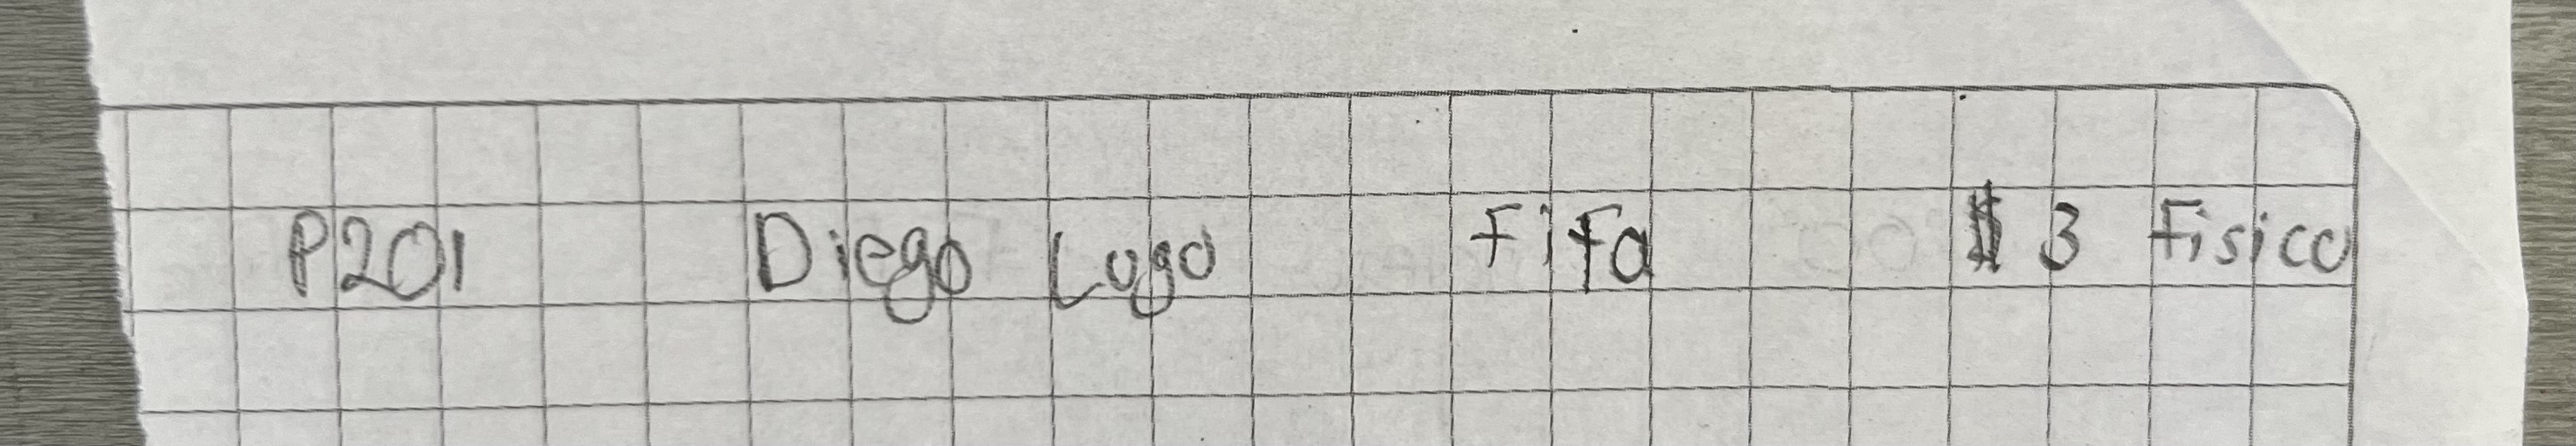 P201 Diego Lugo Fifa $ 3 Fisico